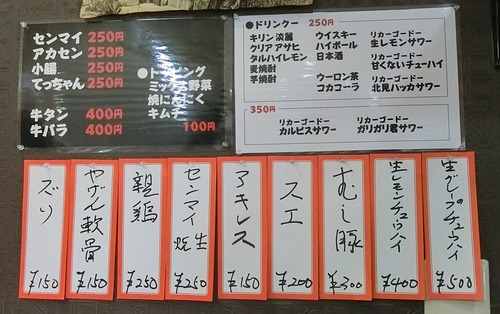 センマイ 250円
アカセン 250円
小腸 250円
てっちゃん 250円
牛タン 400円
牛バラ 400円
●トッピング
ミックス野菜
焼にんにく
キムチ
100円
●ドリンクー 250円
キリン淡麗
クリアアサヒ
タルハイレモン
麦焼酎
芋焼酎
ウイスキー
ハイボール
日本酒
ウーロン茶
コカコーラ
リカーゴードー
生レモンサワー
リカーゴードー
甘くないチューハイ
リカーゴードー
北見ハッカサワー
350円
リカーゴードー
カルピスサワー
リカーゴードー
ガリガリ君サワー
ズリ
¥150
やげん軟骨
¥150
親鶏
¥250
センマイ 焼 生
¥250
アキレス
¥150
スエ
¥200
むし豚
¥300
生レモンチュウハイ
¥400
生グレープチュウハイ
¥500